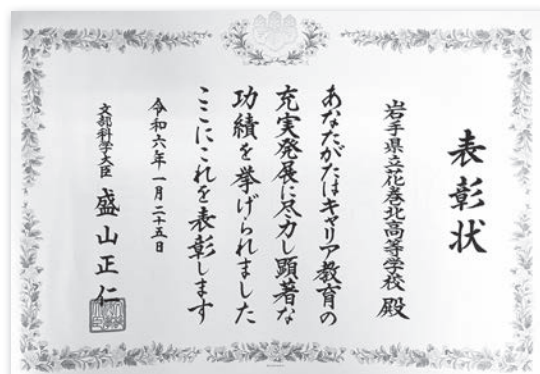 表彰状
岩手県立花巻北高等学校 殿
あなたがたはキャリア教育の
充実発展に尽力し顕著な
功績を挙げられました
ここにこれを表彰します
令和六年一月二十五日
文部科学大臣 盛山正仁